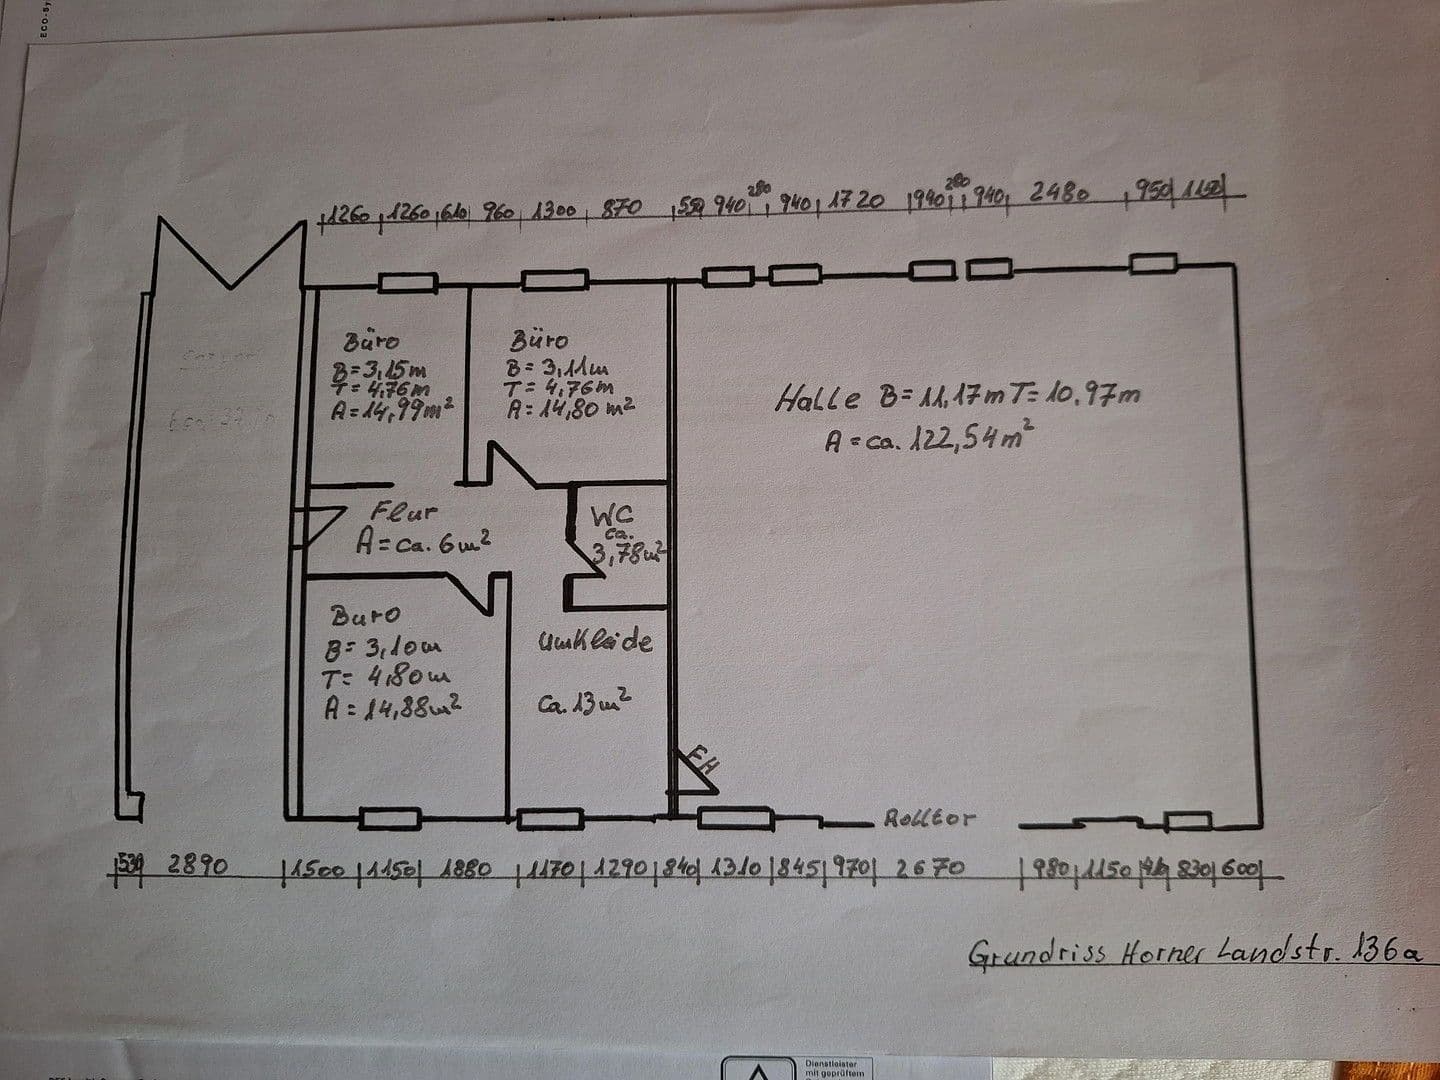 ECO-Sy
280 280
1260 1260 610 960 1300 870 550 940 940 1720 940 940 2480 950 1150
Büro
B=3,15m
T=4,76m
A=14,99m²
Büro
B=3,11m
T=4,76m
A=14,80m²
Halle B=11,17m T=10,97m
A=ca. 122,54m²
Flur
A=ca. 6m²
WC
ca.
3,78m²
Buro
B=3,10m
T=4,80m
A=14,88m²
Umkleide
Ca. 13m²
FH
Rolltor
530 2890 1500 1150 1880 1170 1290 840 1310 845 970 2670 980 1150 830 600
Grundriss Horner Landstr. 136a
Dienstleister
mit geprüftem